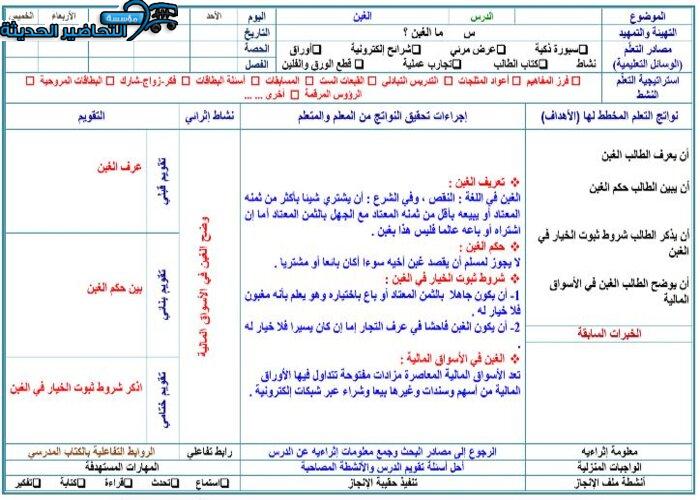 الموضوع الدرس الغبن اليوم الأحد الأربعاء الخميس
مؤسسة
التحاضير الحديثة
التهيئة والتمهيد س ما الغبن ؟ التاريخ
مصادر التعلم سبورة ذكية عرض مرئي شرائح إلكترونية أوراق الحصة
(الوسائل التعليمية) نشاط كتاب الطالب تجارب عملية قطع الورق والفلين الفصل
استراتيجية التعلم فرز المفاهيم أعواد المثلجات التدريس التبادلي القبعات الست المسابقات أسئلة البطاقات فكر-زواج-شارك البطاقات المروحية
النشط الرؤوس المرقمة أخرى ... ...
نواتج التعلم المخطط لها (الأهداف) إجراءات تحقيق النواتج من المعلم والمتعلم نشاط إثرائي التقويم
أن يعرف الطالب الغبن
أن يبين الطالب حكم الغبن
أن يذكر الطالب شروط ثبوت الخيار في
الغبن
أن يوضح الطالب الغبن في الأسواق
المالية
الخبرات السابقة
تعريف الغبن :
الغبن في اللغة : النقص ، وفي الشرع : أن يشتري شيئا بأكثر من ثمنه
المعتاد أو يبيعه بأقل من ثمنه المعتاد مع الجهل بالثمن المعتاد أما إن
اشتراه أو باعه عالما فليس هذا بغبن .
حكم الغبن :
لا يجوز لمسلم أن يقصد غبن أخيه سوءا أكان بائعا أو مشتريا .
شروط ثبوت الخيار في الغبن :
1- أن يكون جاهلا بالثمن المعتاد أو باع باختياره وهو يعلم بأنه مغبون
فلا خيار له .
2- أن يكون الغبن فاحشا في عرف التجار إما إن كان يسيرا فلا خيار له
.
الغبن في الأسواق المالية :
تعد الأسواق المالية المعاصرة مزادات مفتوحة تتداول فيها الأوراق
المالية من أسهم وسندات وغيرها بيعا وشراء عبر شبكات إلكترونية .
وضح الغبن في الأسواق المالية
تقويم قبلي
عرف الغبن
تقويم بنائي
بين حكم الغبن
تقويم ختامي
اذكر شروط ثبوت الخيار في الغبن
معلومة إثراءيه الرجوع إلى مصادر البحث وجمع معلومات إثراءيه عن الدرس رابط تفاعلي الروابط التفاعلية بالكتاب المدرسي
الواجبات المنزلية أحل أسئلة تقويم الدرس والأنشطة المصاحبة المهارات المستهدفة
أنشطة ملف الإنجاز تنفيذ حقيبة الإنجاز استماع تحدث قراءة كتابة تفكير